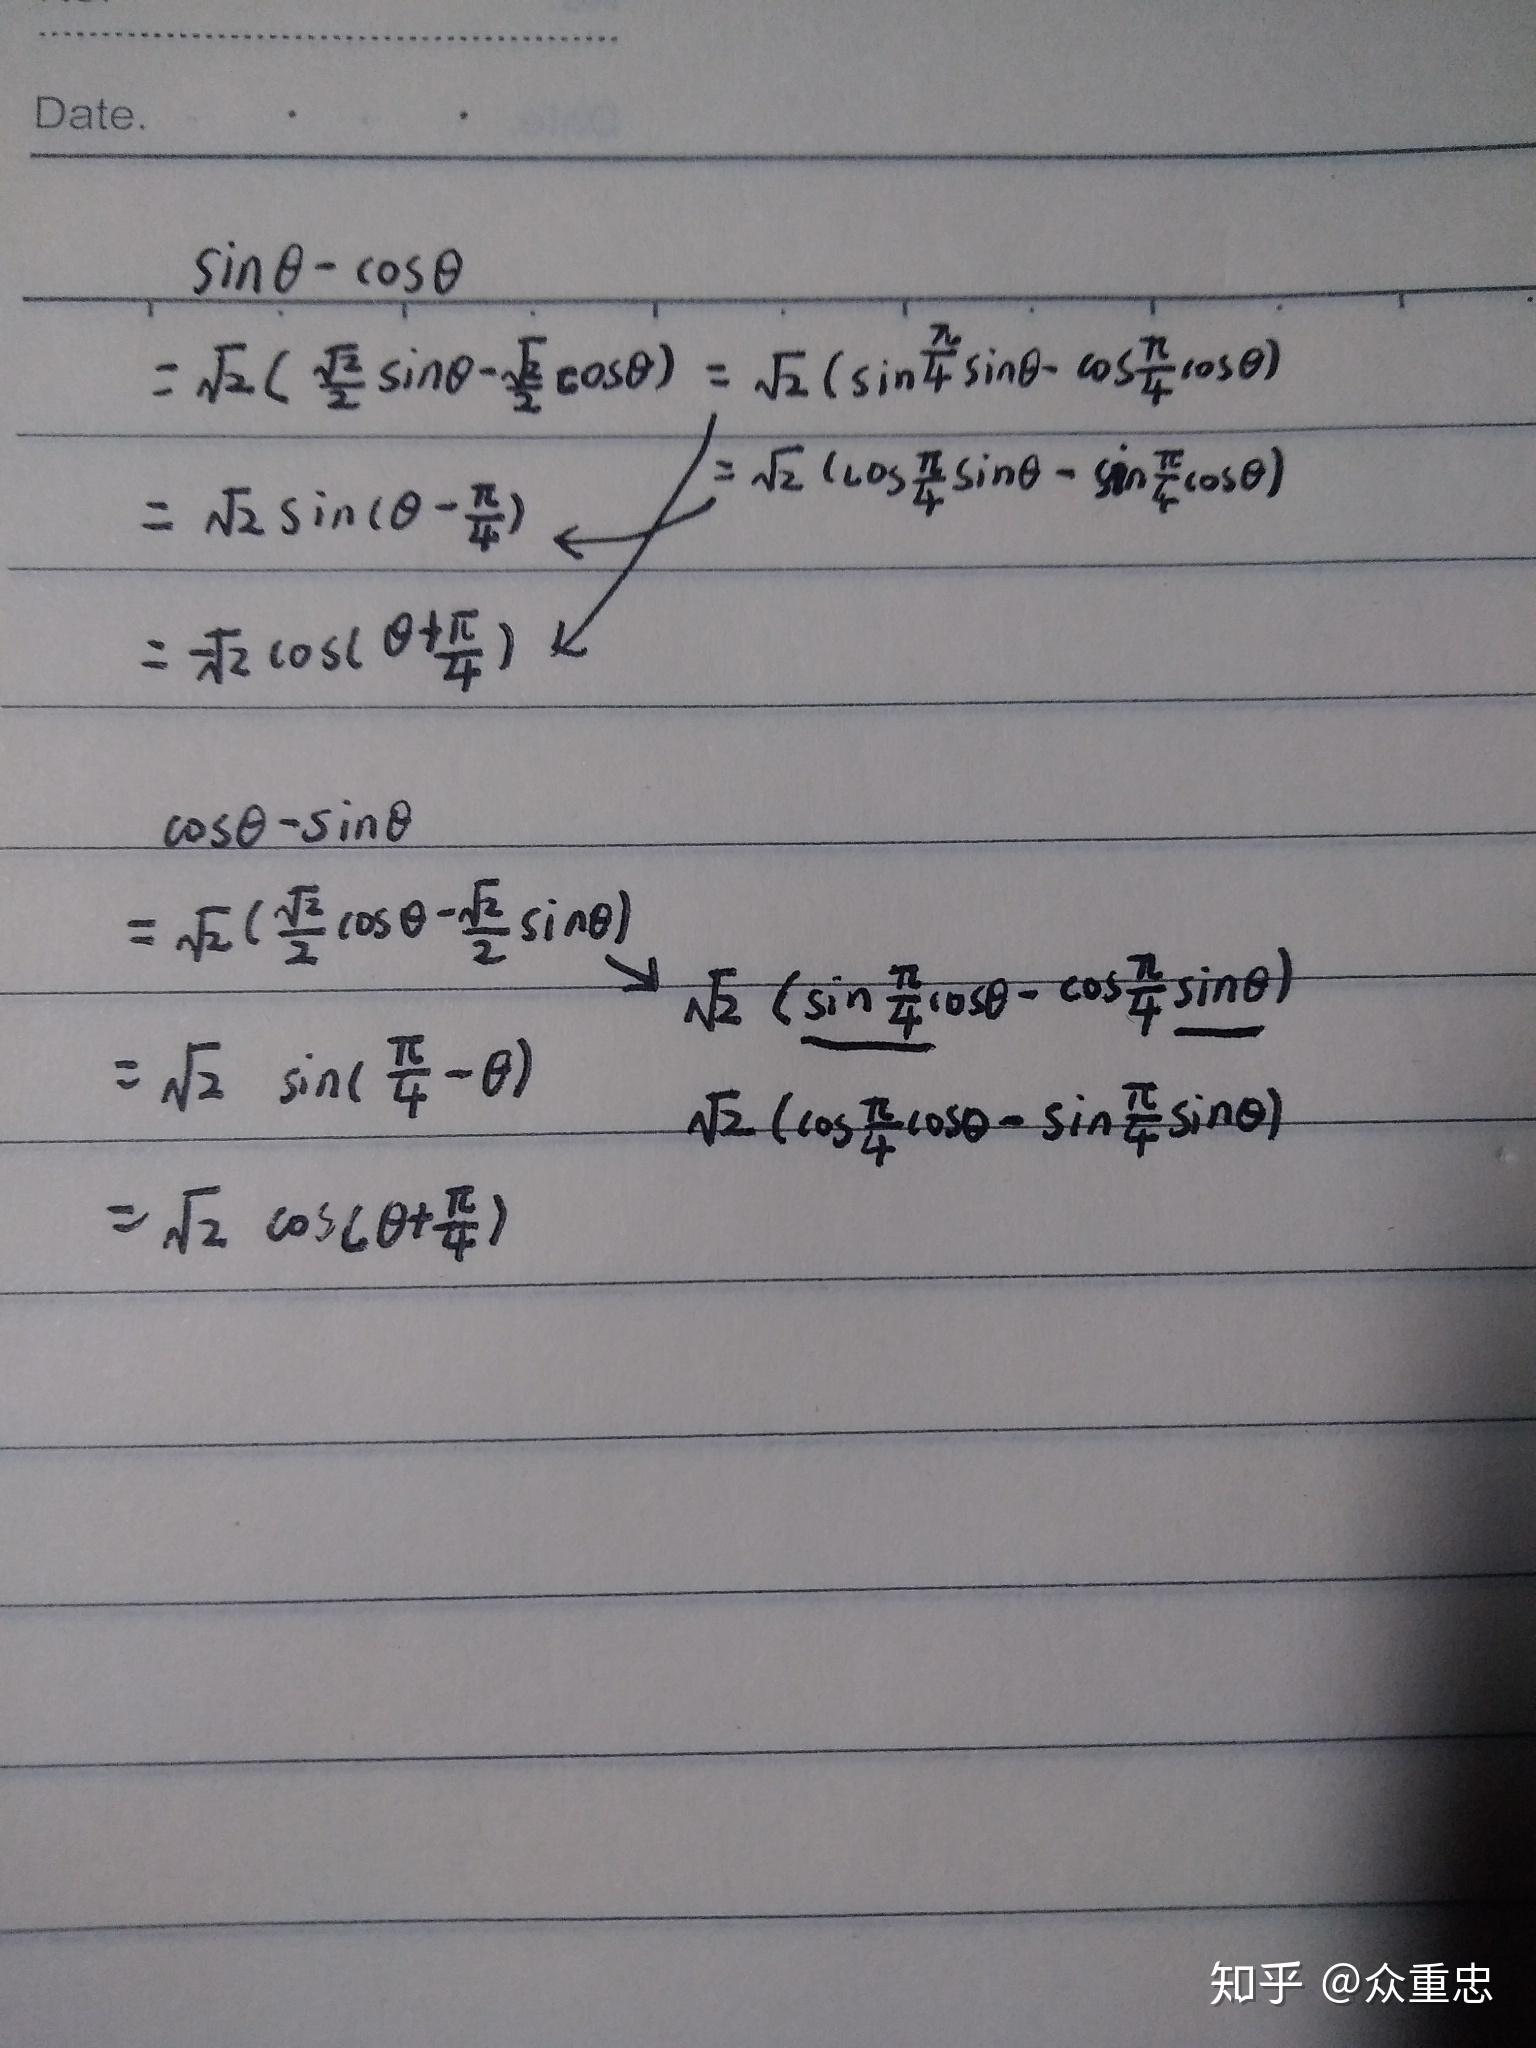 Date.
sinθ-cosθ
=√2(√2/2 sinθ-√2/2 cosθ) = √2(sin π/4 sinθ- cos π/4 cosθ)
= √2 (cos π/4 sinθ - sin π/4 cosθ)
= √2 sin(θ-π/4)
= -√2 cos(θ+π/4)
cosθ-sinθ
= √2(√2/2 cosθ-√2/2 sinθ)
√2 (sin π/4 cosθ- cos π/4 sinθ)
= √2 sin(π/4-θ)
√2 (cos π/4 cosθ- sin π/4 sinθ)
= √2 cos(θ+π/4)
知乎 @众重忠